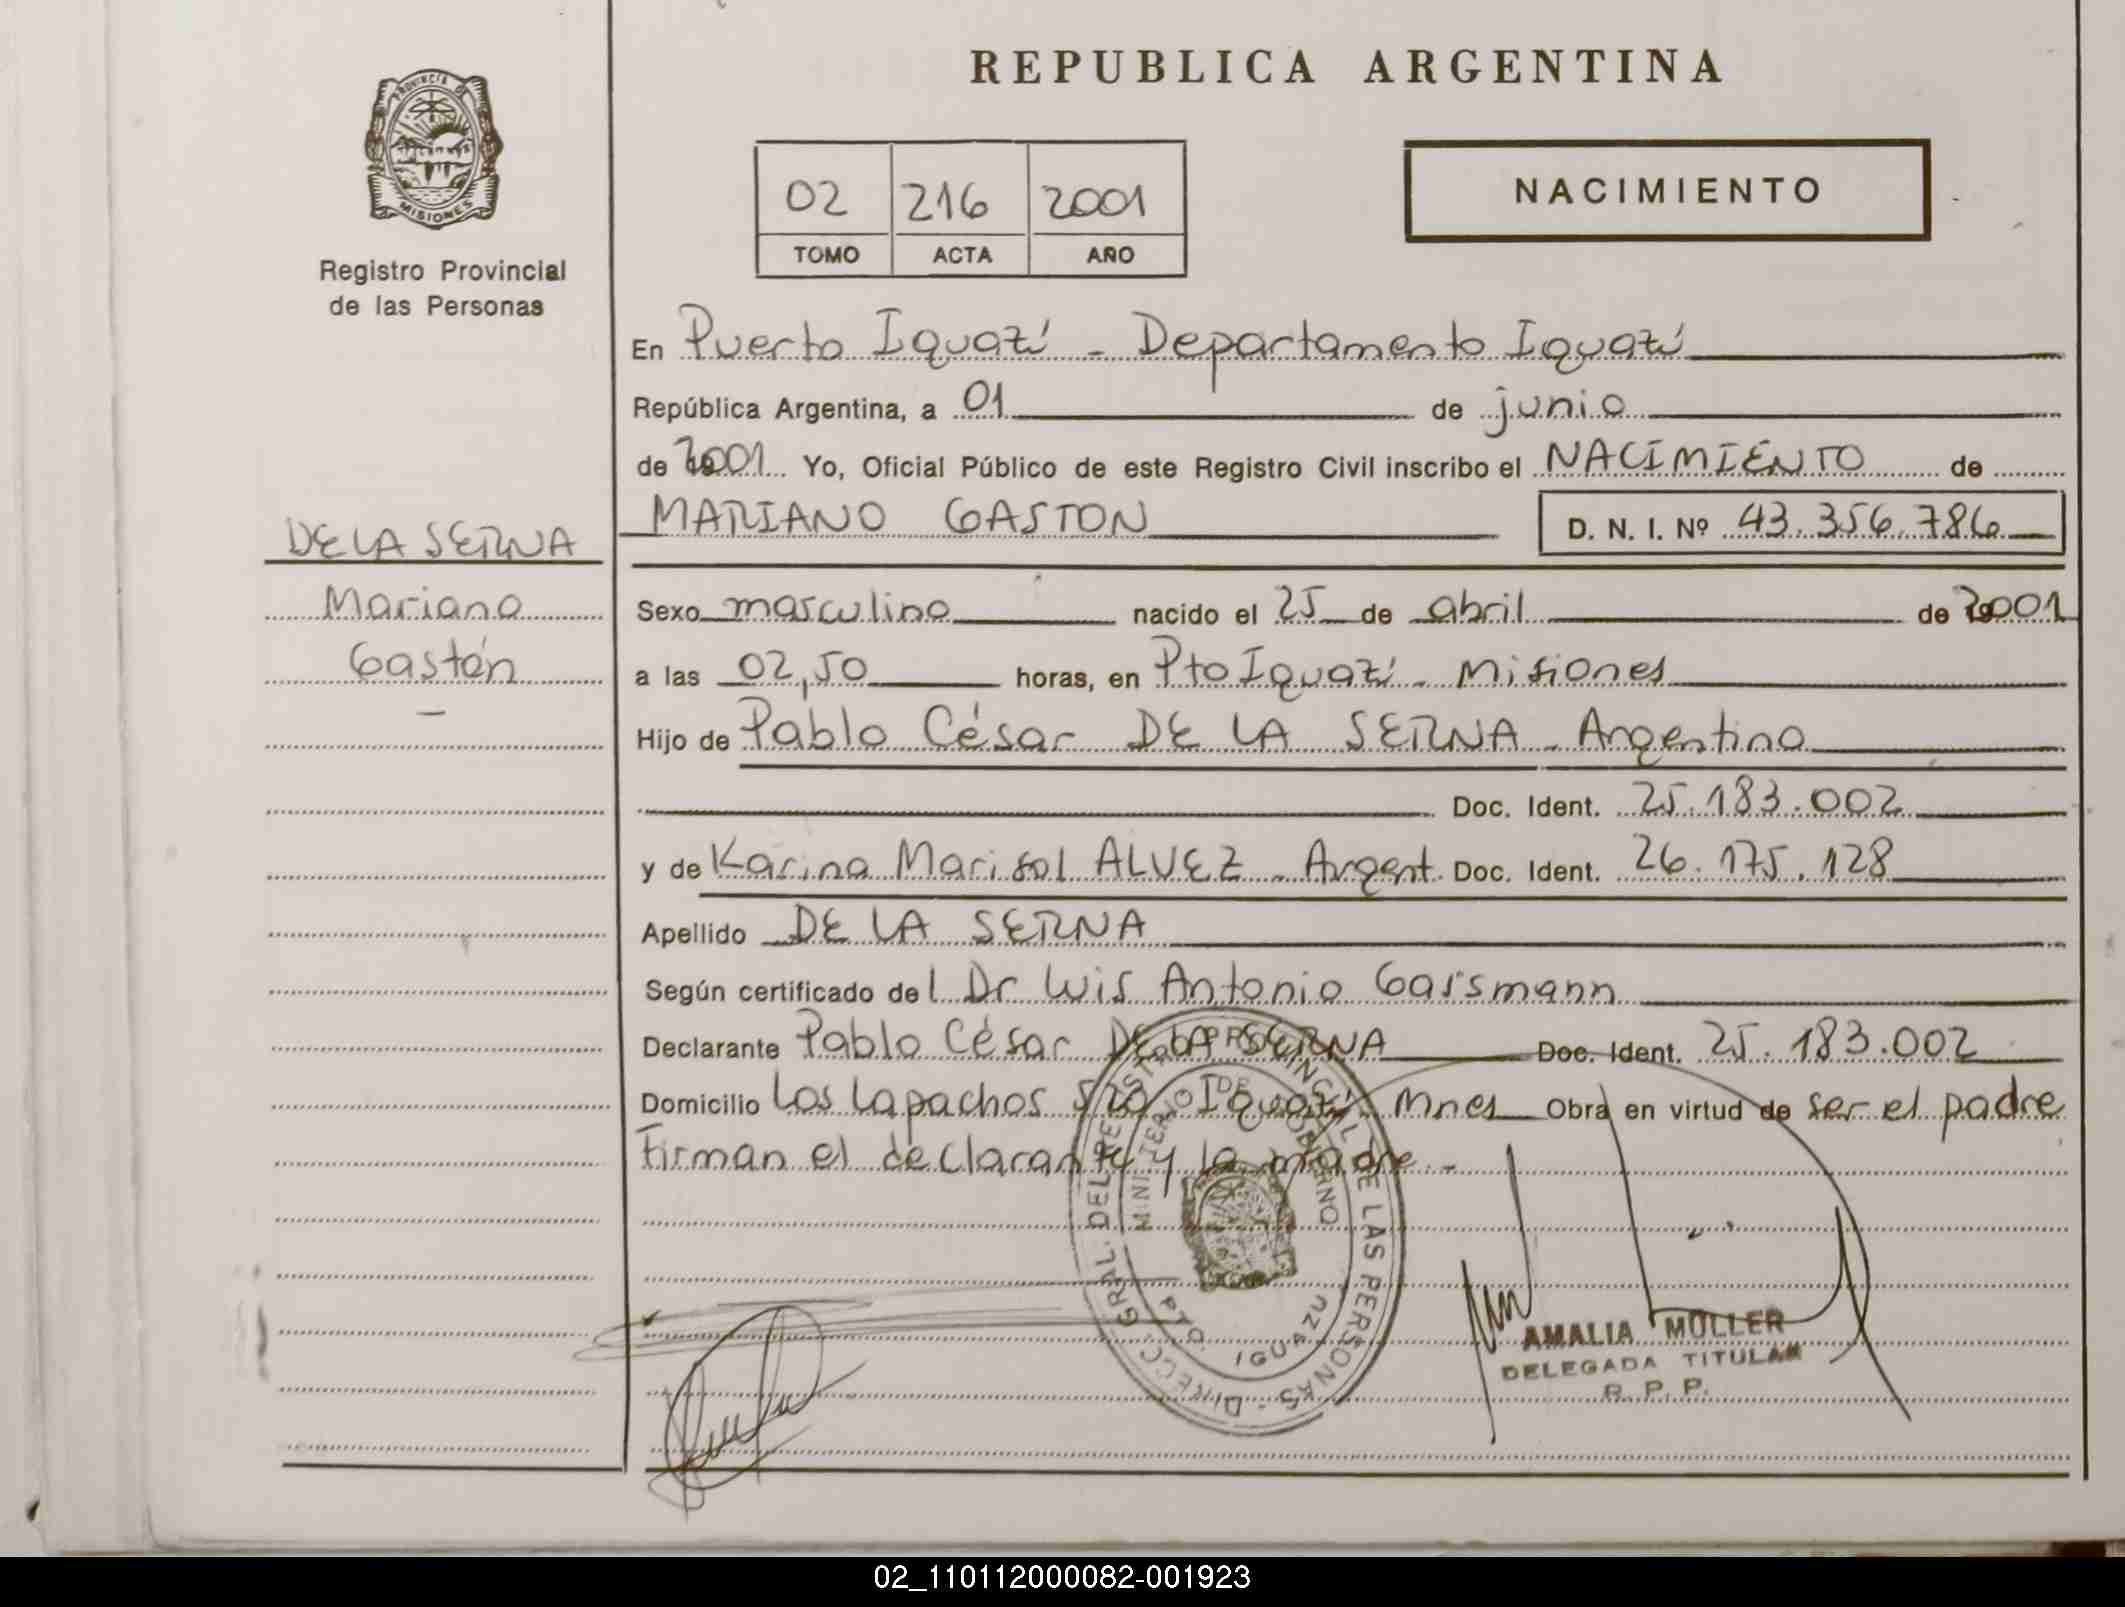 REPUBLICA ARGENTINA
PROVINCIA DE
MISIONES
Registro Provincial
de las Personas
02 216 2001
TOMO ACTA AÑO
NACIMIENTO
En Puerto Iguazú - Departamento Iguazú
República Argentina, a 01 de junio
de 2001 Yo, Oficial Público de este Registro Civil inscribo el NACIMIENTO de
MARIANO GASTON D. N. I. Nº 43.356.786
DE LA SERNA
Mariano
Gastón
Sexo masculino nacido el 25 de abril de 2001
a las 02,50 horas, en Pto Iguazú - Misiones
Hijo de Pablo César DE LA SERNA - Argentino
Doc. Ident. 25.183.002
y de Karina Marisol ALVEZ - Argent. Doc. Ident. 26.175.128
Apellido DE LA SERNA
Según certificado del Dr Luis Antonio
Declarante Pablo César DE LA SERNA Doc. Ident. 25.183.002
Domicilio Los Lapachos Iguazú - Mnes Obra en virtud de ser el padre
Firman el declarante y la madre.-
DIRECC. GRAL. DEL REGISTRO PROVINCIAL DE LAS PERSONAS
MINISTERIO DE GOBIERNO
PTO. IGUAZU
AMALIA MULLER
DELEGADA TITULAR
R. P. P.
02_110112000082-001923